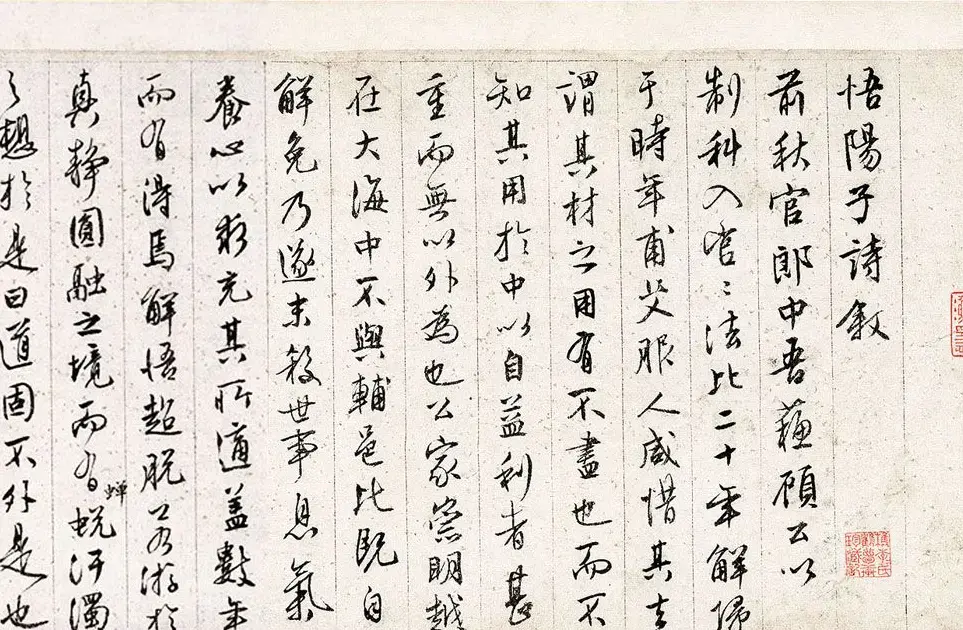 悟陽子詩敘
前秋官郎中吾蘓顧公以
制科入官〻法比二十年解歸
于時年甫艾服人咸惜其去
謂其材之用有不盡也而不
知其用於中以自益利者甚
重而無以外為也公家崇明越
在大海中不與輔邑比既自
解免乃遂末殺世事息氣
養心以求充其所適蓋數年
而有得焉解悟超脫若游於
真靜圓融之境而有蟬蛻汙濁
之想於是曰道固不外是也